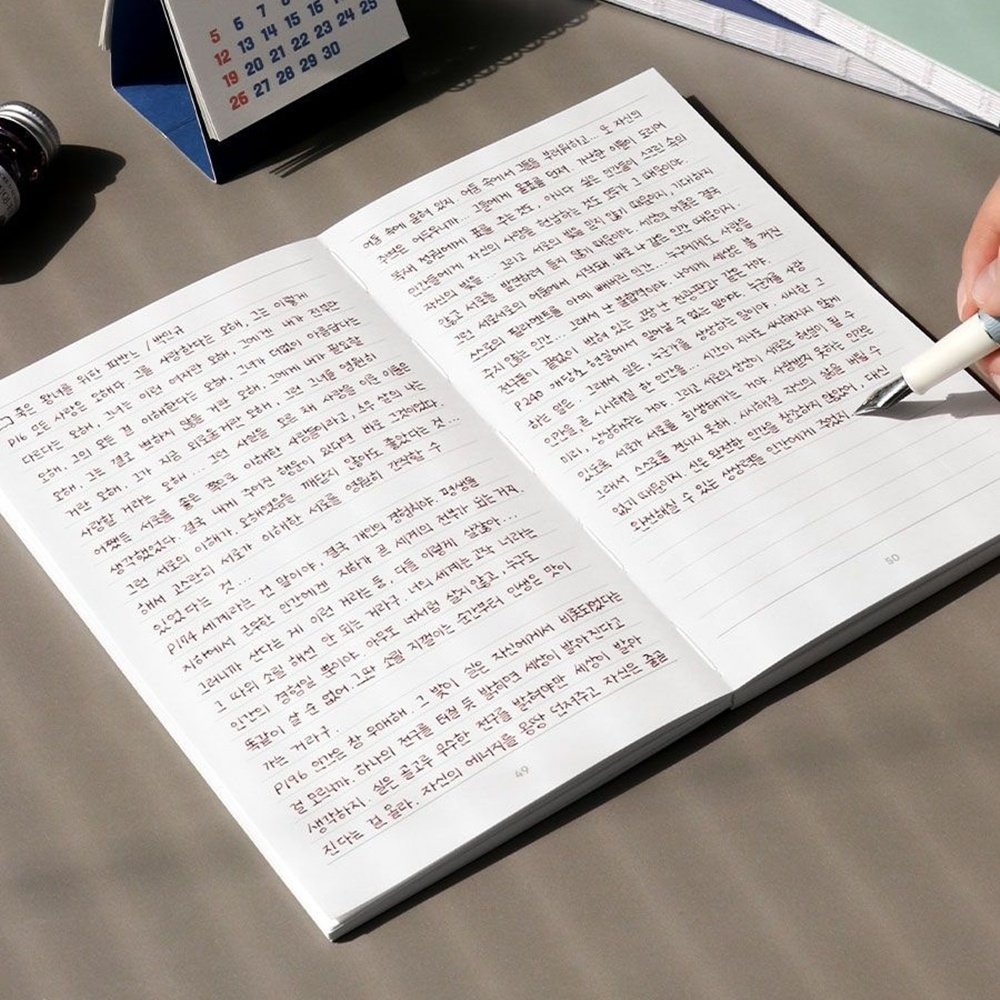 5 6 7 8
12 13 14 15 16 17 18
19 20 21 22 23 24 25
26 27 28 29 30
죽은 왕녀를 위한 파반느 / 박민규
P16 모든 사랑은 오해다. 그를 사랑한다는 오해, 그는 이렇게
다르다는 오해, 그녀는 이런 여자란 오해, 그에게 내가 전부란
오해, 그의 모든 걸 이해한다는 오해, 그녀가 더없이 아름답다는
오해, 그는 결코 변하지 않을 거란 오해, 그에게 내가 필요할
거란 오해, 그가 지금 외로울 거란 오해, 그런 그녀를 영원히
사랑할 거라는 오해... 그런 사실을 모른 채
어쨌든 서로를 좋은 쪽으로 이해한 사람들이라고, 스무 살의 나는
생각했었다. 결국 내게 주어진 행운이 있다면 바로 그것이었다.
그런 서로의 이해가, 오해였음을 깨닫지 않아도 좋았다는 것...
해서 고스란히 서로가 이해한 서로를 영원히 간직할 수
있었다는 것...
P174 세계라는 건 말이야, 결국 개인의 경험치야. 평생을
지하에서 근무한 인간에겐 지하가 곧 세계의 전부가 되는 거지.
그러니까 산다는 게 이런 거라는 둥, 다들 이렇게 살잖아...
그 따위 소릴 해선 안 되는 거라구. 너의 세계는 고작 너라는
인간의 경험일 뿐이야. 아무도 너처럼 살지 않고, 누구도
똑같이 살 순 없어. 그딴 소릴 지껄이는 순간부터 인생은 맛이
가는 거라구.
P196 인간은 참 우매해. 그 빛이 실은 자신에게서 비롯되었다는
걸 모르니까. 하나의 전구를 터질 듯 밝히면 세상이 밝아진다고
생각하지. 실은 골고루 무수한 전구를 밝혀야만 세상이 밝아
진다는 걸 몰라. 자신의 에너지를 몽땅 던져주고 자신은 줄곧
49
어둠 속에 묻혀 있지. 어둠 속에서 그들을 부러워하고... 또 자신의
주변은 어두우니까... 그들에게 몰표를 던져. 가난한 이들이 도리어
독재 정권에게 표를 주는 것도, 아니다 싶은 인간들이 스크린 속의
인간들에게 자신의 사랑을 헌납하는 것도 모두가 그 때문이야.
자신의 빛을... 그리고 서로의 빛을 믿지 않기 때문이지. 기대하지
않고 서로를 발견하려 들지 않기 때문이야. 세상의 어둠은 결국
그런 서로서로의 어둠에서 시작돼. 바로 나 같은 인간 때문이지.
스스로의 필라멘트를 아예 빼버린 인간... 누구에게도 사랑을
주지 않는 인간... 그래서 난 불합격이야. 나에게 세상은 불 꺼진
전구들이 끝없이 박혀 있는 고장 난 전광판과 같은 거야.
P240 해당초 현실에서 일어날 수 없는 일이야. 누군가를 사랑
하는 일은. 그래서 실은, 누군가를 상상하는 일이야. 시시한 그
인간을, 곧 시시해질 한 인간을... 시간이 지나도 시시해지지 않게
미리, 상상해주는 거야. 그리고 서로의 상상이 새로운 현실이 될 수
있도록 서로가 서로를 희생해가는 거야. 사랑받지 못하는 인간은
그래서 스스로를 견디지 못해. 시시해질 자신의 삶을 버틸 수
없기 때문이지. 신은 완전한 인간을 창조하지 않았어, 대신
완전해질 수 있는 상상력을 인간에게 주었지.
50